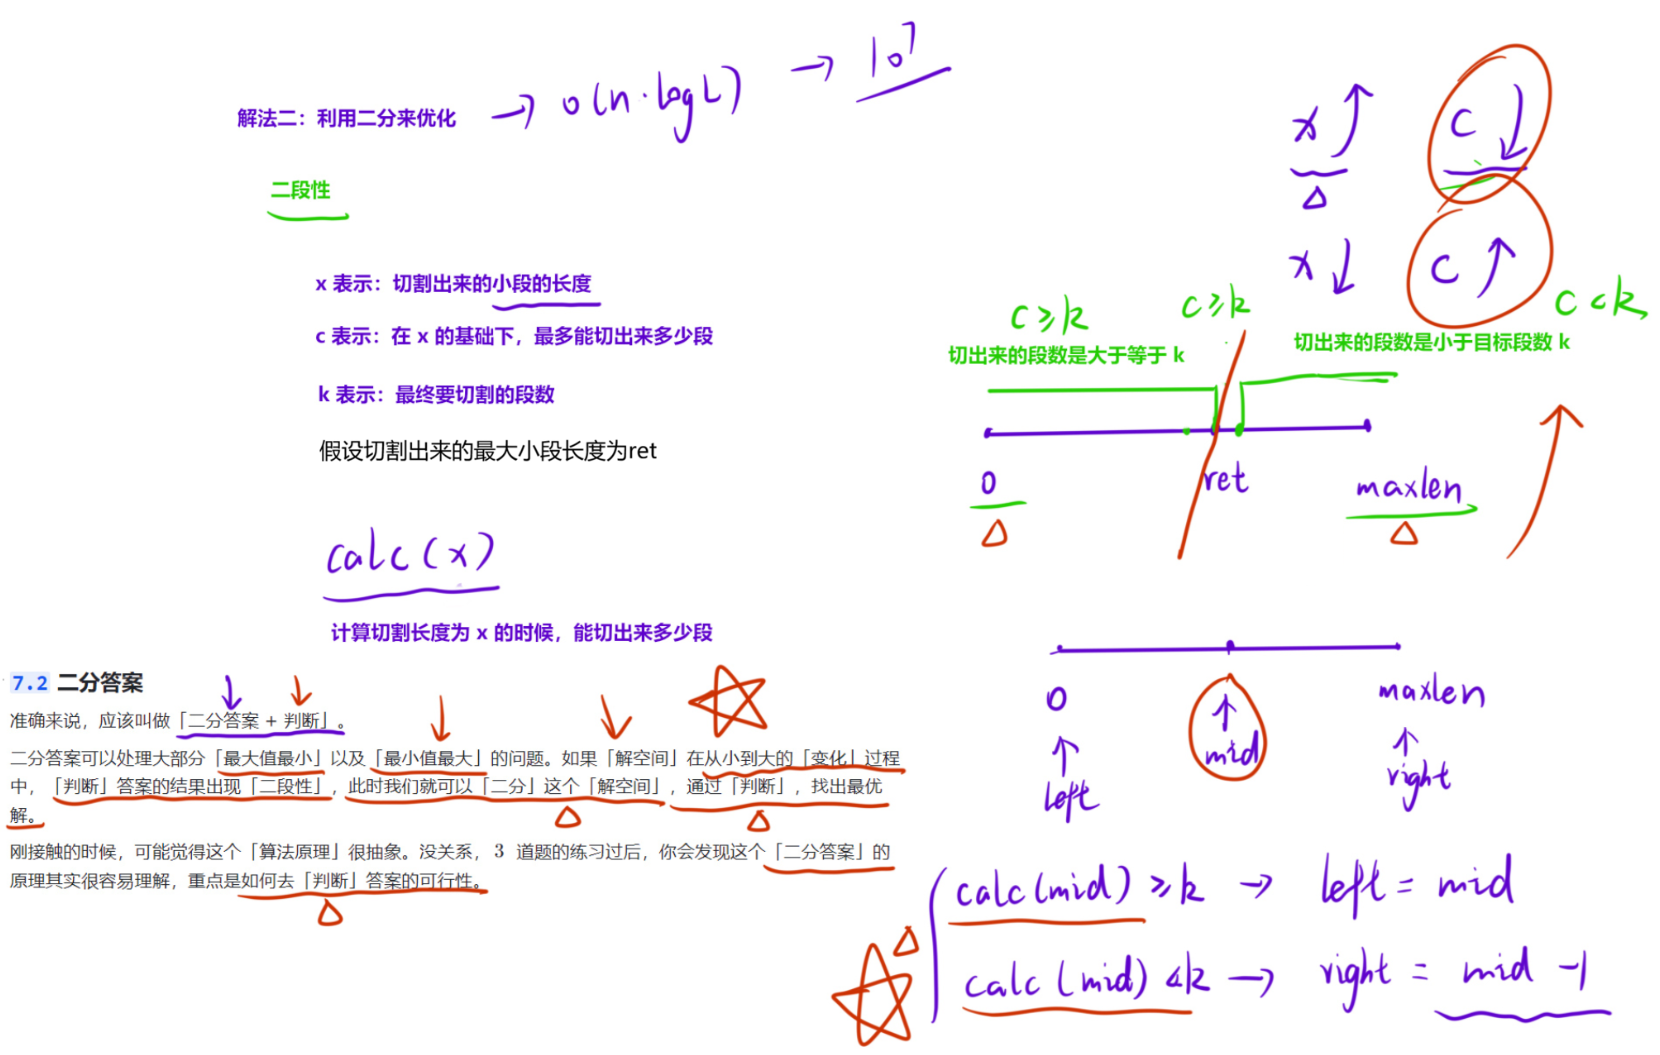 解法二：利用二分来优化 → O(n·logL) → 10⁷
二段性
x 表示：切割出来的小段的长度
c 表示：在 x 的基础下，最多能切出来多少段
k 表示：最终要切割的段数
假设切割出来的最大小段长度为ret
calc(x)
计算切割长度为 x 的时候，能切出来多少段
7.2 二分答案
准确来说，应该叫做「二分答案 + 判断」。
二分答案可以处理大部分「最大值最小」以及「最小值最大」的问题。如果「解空间」在从小到大的「变化」过程
中，「判断」答案的结果出现「二段性」，此时我们就可以「二分」这个「解空间」，通过「判断」，找出最优
解。
刚接触的时候，可能觉得这个「算法原理」很抽象。没关系，3 道题的练习过后，你会发现这个「二分答案」的
原理其实很容易理解，重点是如何去「判断」答案的可行性。
x ↑ c ↓
x ↓ c ↑
c ≥ k c ≥ k c < k
切出来的段数是大于等于 k 切出来的段数是小于目标段数 k
0 ret maxlen
0 ↑ maxlen
↑ mid ↑
left right
calc(mid) ≥ k → left = mid
calc(mid) < k → right = mid - 1